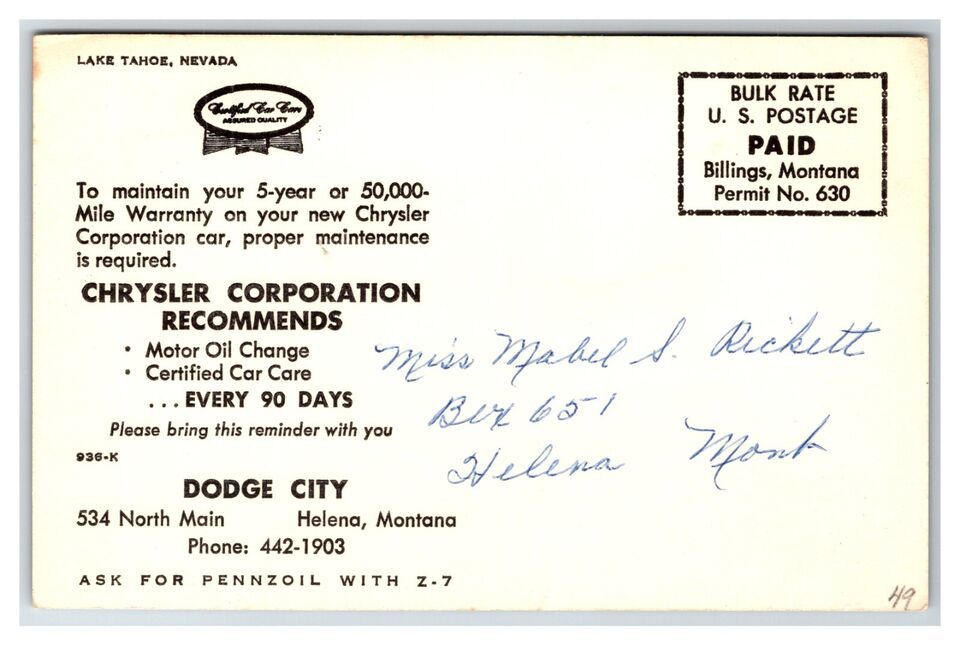 LAKE TAHOE, NEVADA
Certified Car Care
ASSURED QUALITY
BULK RATE
U. S. POSTAGE
PAID
Billings, Montana
Permit No. 630
To maintain your 5-year or 50,000-
Mile Warranty on your new Chrysler
Corporation car, proper maintenance
is required.
CHRYSLER CORPORATION
RECOMMENDS
• Motor Oil Change
• Certified Car Care
...EVERY 90 DAYS
Please bring this reminder with you
936-K
DODGE CITY
534 North Main Helena, Montana
Phone: 442-1903
ASK FOR PENNZOIL WITH Z-7
Miss Mabel S. Rickett
Box 651
Helena Mont
49